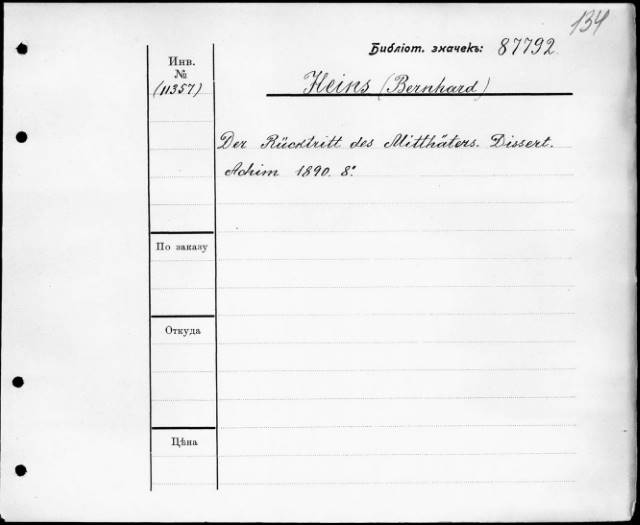 134
Библіот. значекъ: 87792
Инв.
№
(11357)
Heins (Bernhard)
Der Rücktritt des Mitthäters. Dissert.
Achim 1890. 8°.
По заказу
Откуда
Цѣна